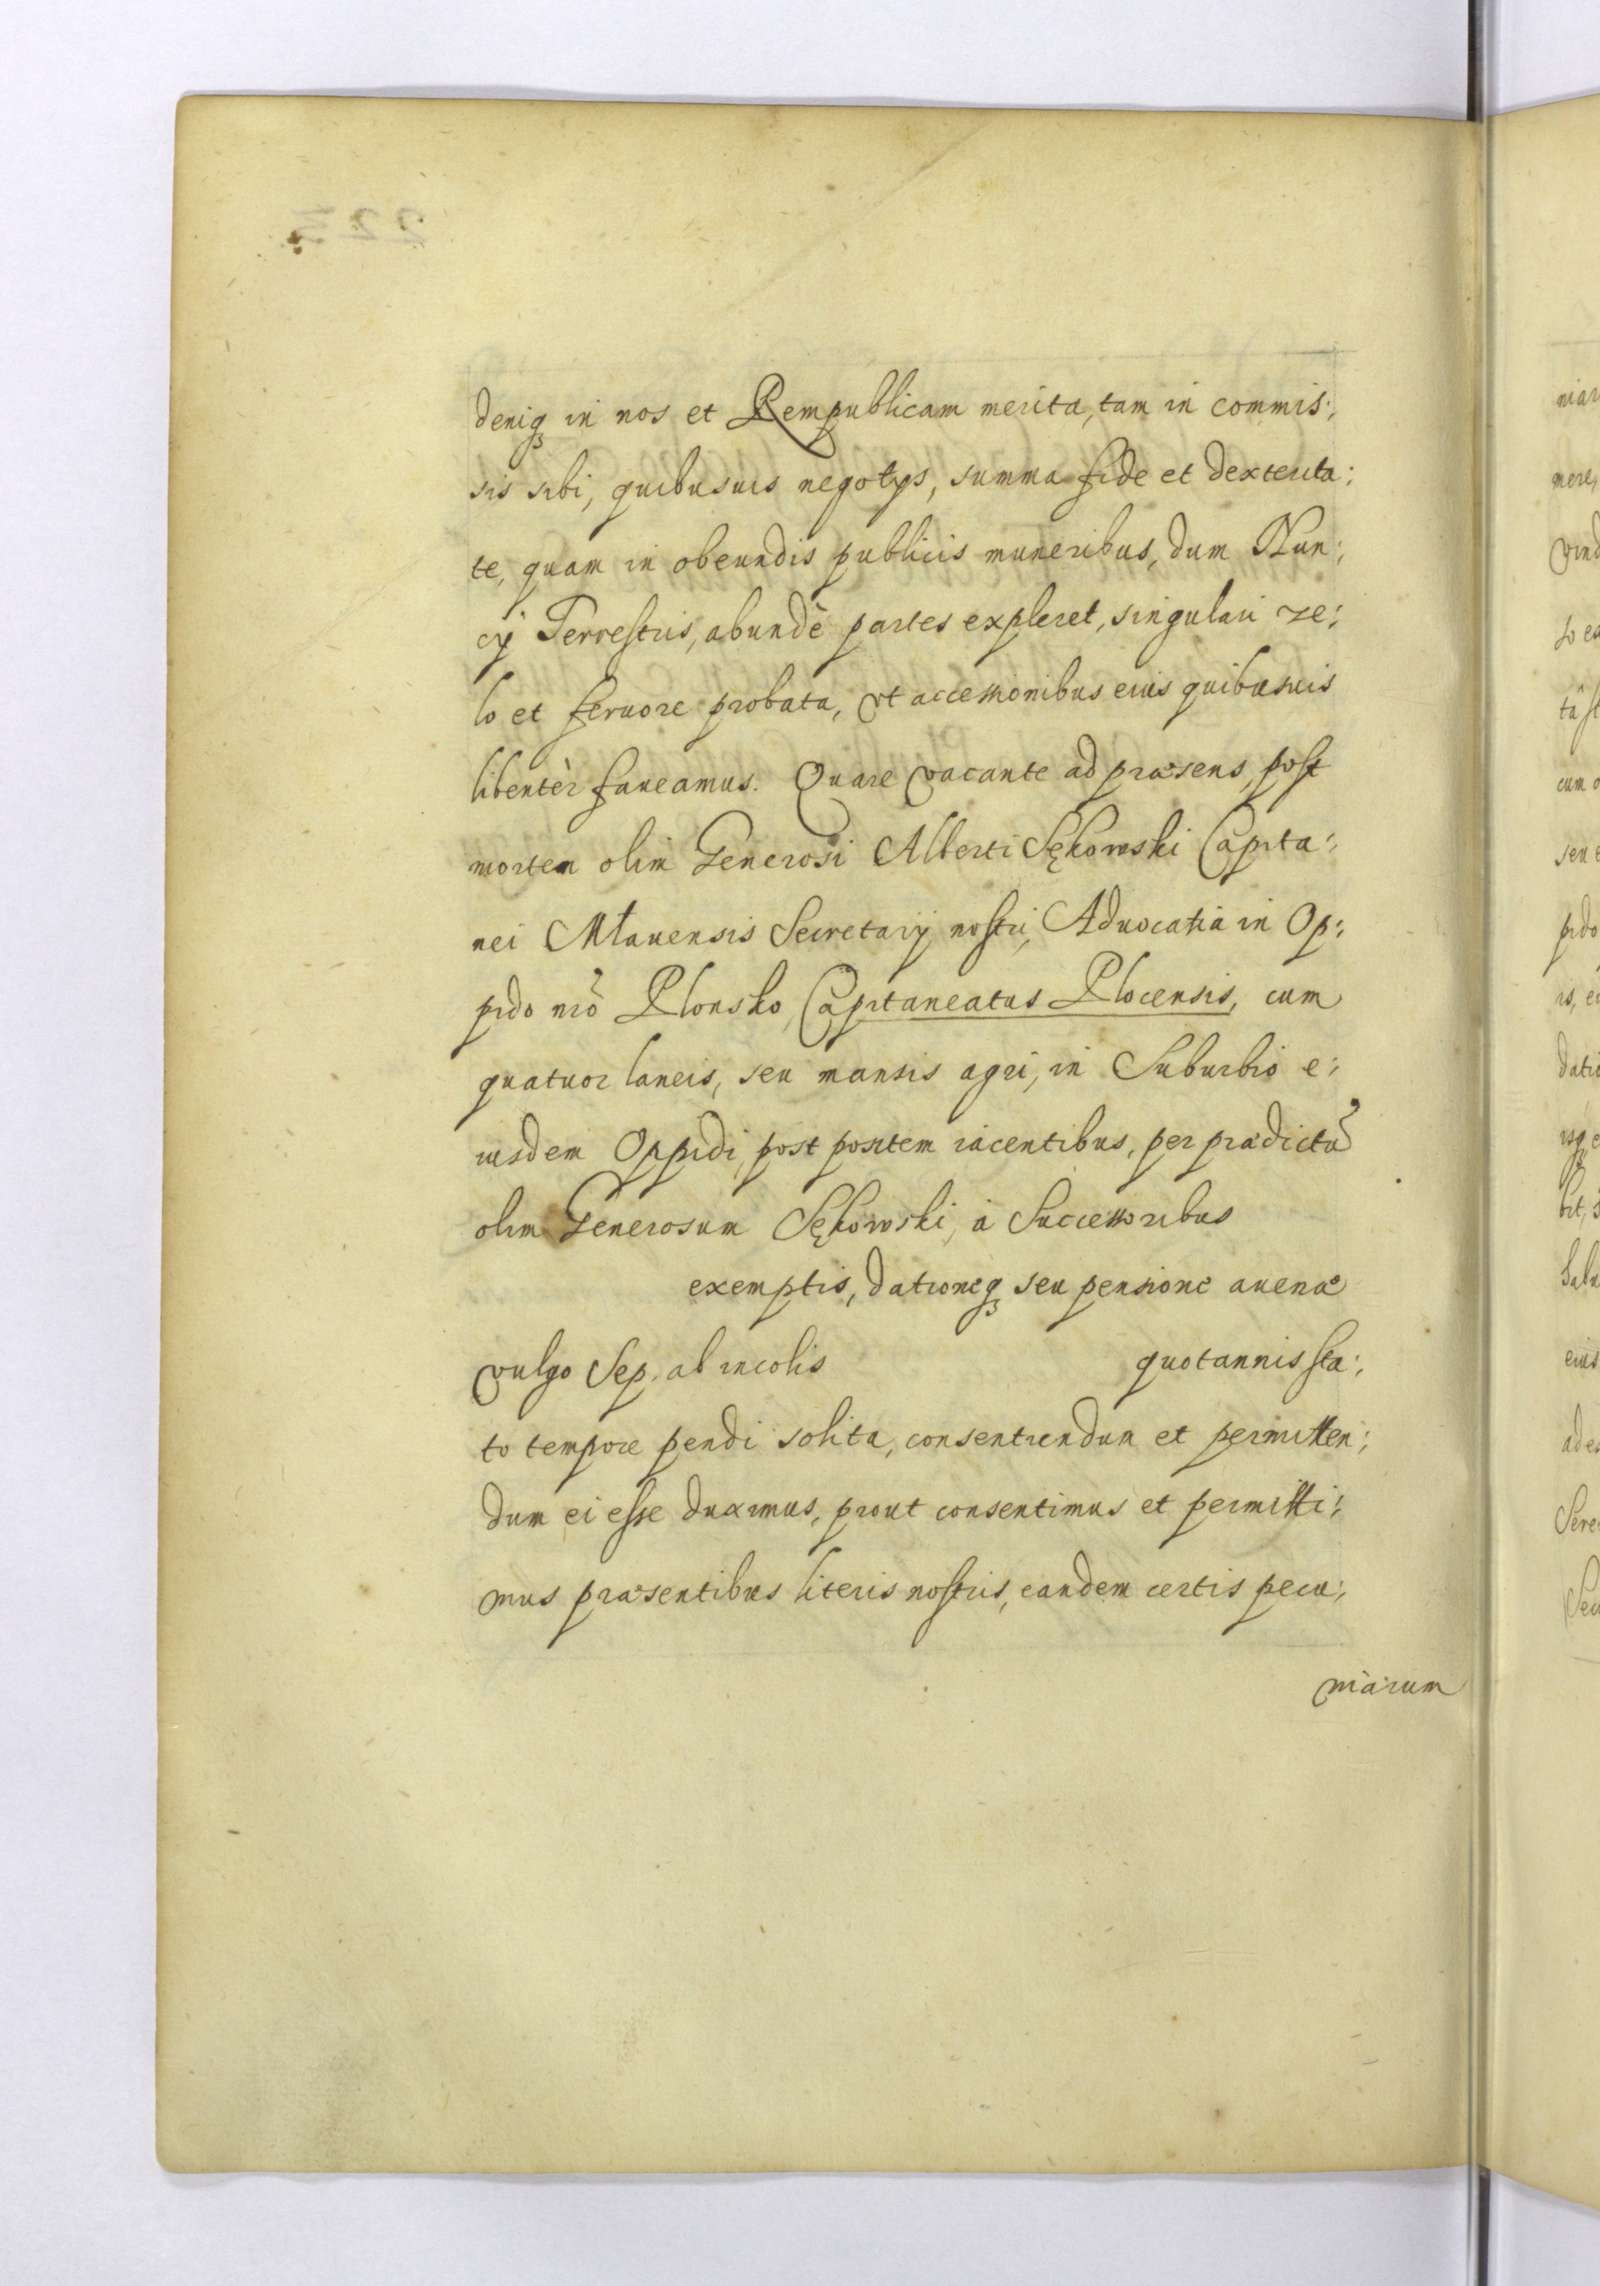 deniq in nos et Rempublicam merita, tam in commis:
sis sibi, quibusuis negotys, summa fide et dexterita:
te, quam in obeundis publicis muneribus, dum Nun:
cÿ Terrestris, abundè partes expleret, singulari ze:
lo et feruore probata, vt accessionibus eius quibusuis
libentèr faueamus. Quare vacante ad præsens, post
mortem olim Generosi Alberti Sękowski Capita:
nei Mlauensis Secretarÿ nostri, Aduocatia in Op:
pido nr̃o Plonsko, Capitaneatus Plocensis, cum
quatuor laneis, seu mansis agri, in Suburbio e:
iusdem Oppidi, post positem iacentibus, per prædictũ
olim Generosum Sękowski, à Successoribus
exemptis, dationeq seu pensione auenæ
vulgo Sep, ab incolis quotannis sta:
to tempore pendi solita, consentiendum et permitten:
dum ei esse duximus, prout consentimus et permitti:
mus præsentibus literis nostris, eandem certis pecu:
niarum